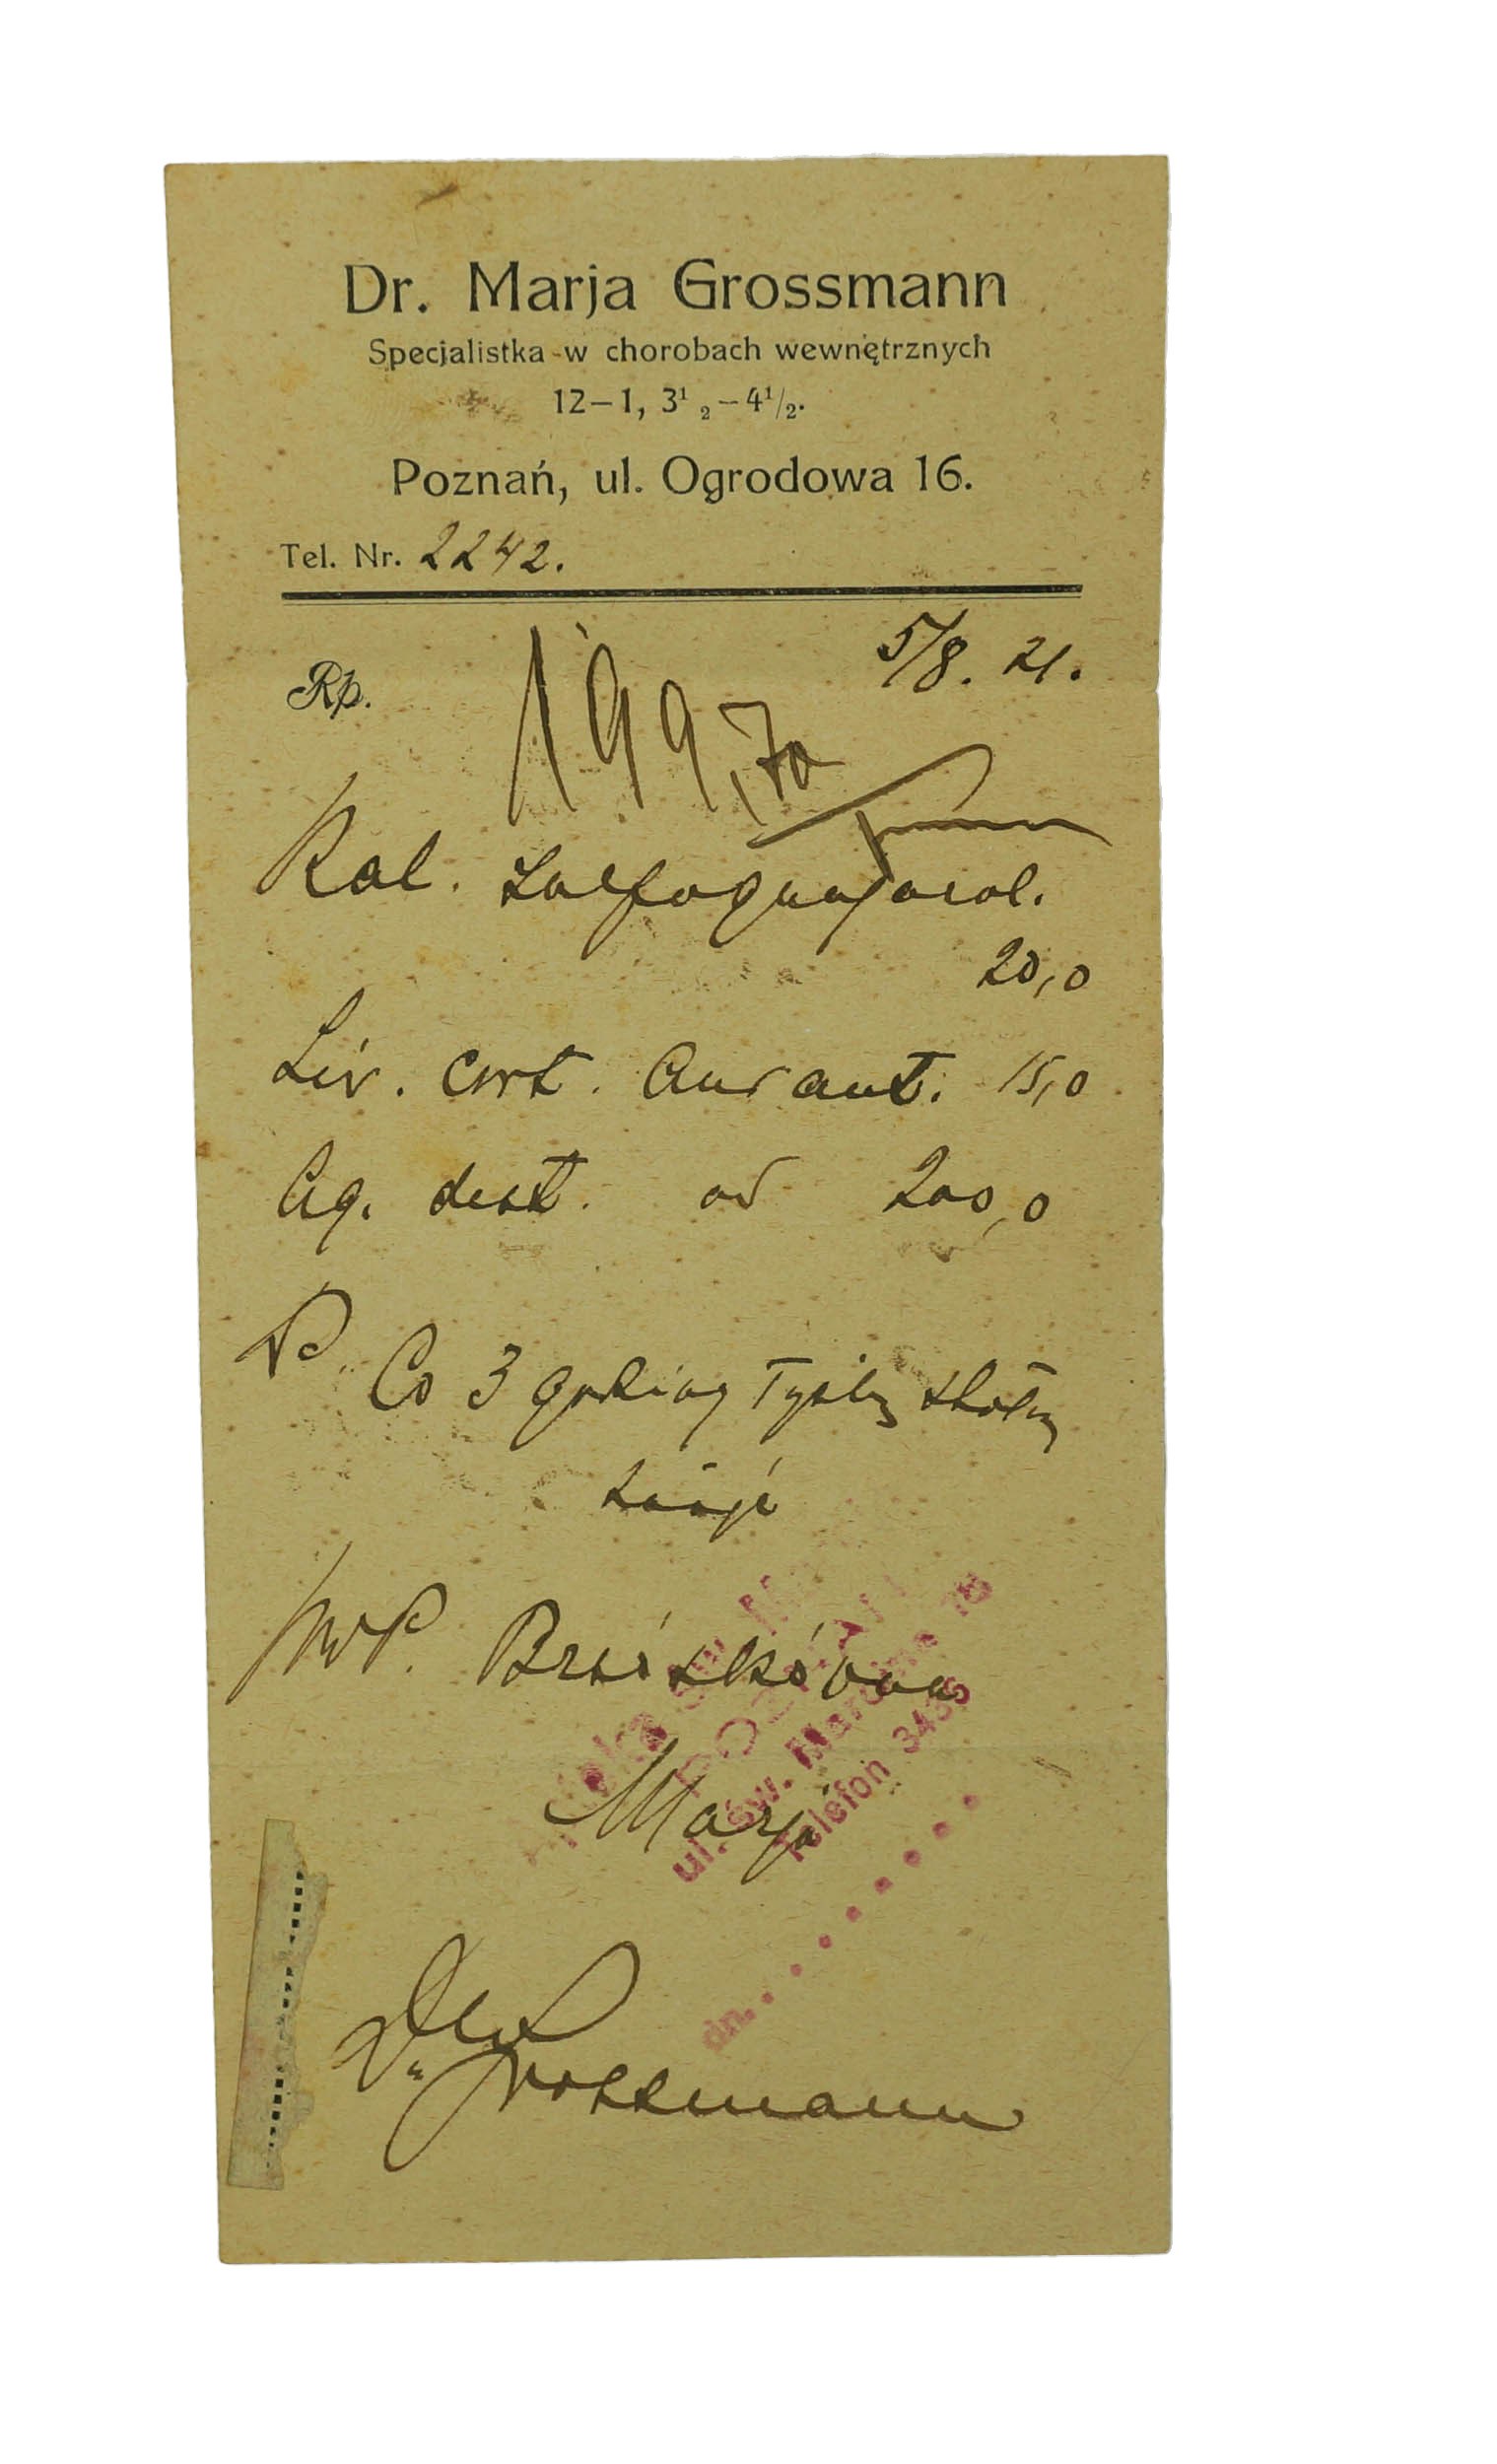 Dr. Marja Grossmann
Specjalistka w chorobach wewnętrznych
12–1, 3¹ ₂–4¹/₂.
Poznań, ul. Ogrodowa 16.
Tel. Nr. 2242.
5/8. 21.
Rp.
199,70
Kal. sulfoguajacol.
20,0
Sir. cort. Aurant. 15,0
Aq. dest. ad 200,0
Co 3 godziny łyżkę stołową
zażyć
WP.
Marja
Apteka św.
POZNAŃ
ul. św. Marcina 18
Telefon 3435
dn. . . . . . . . .
Dr Grossmann